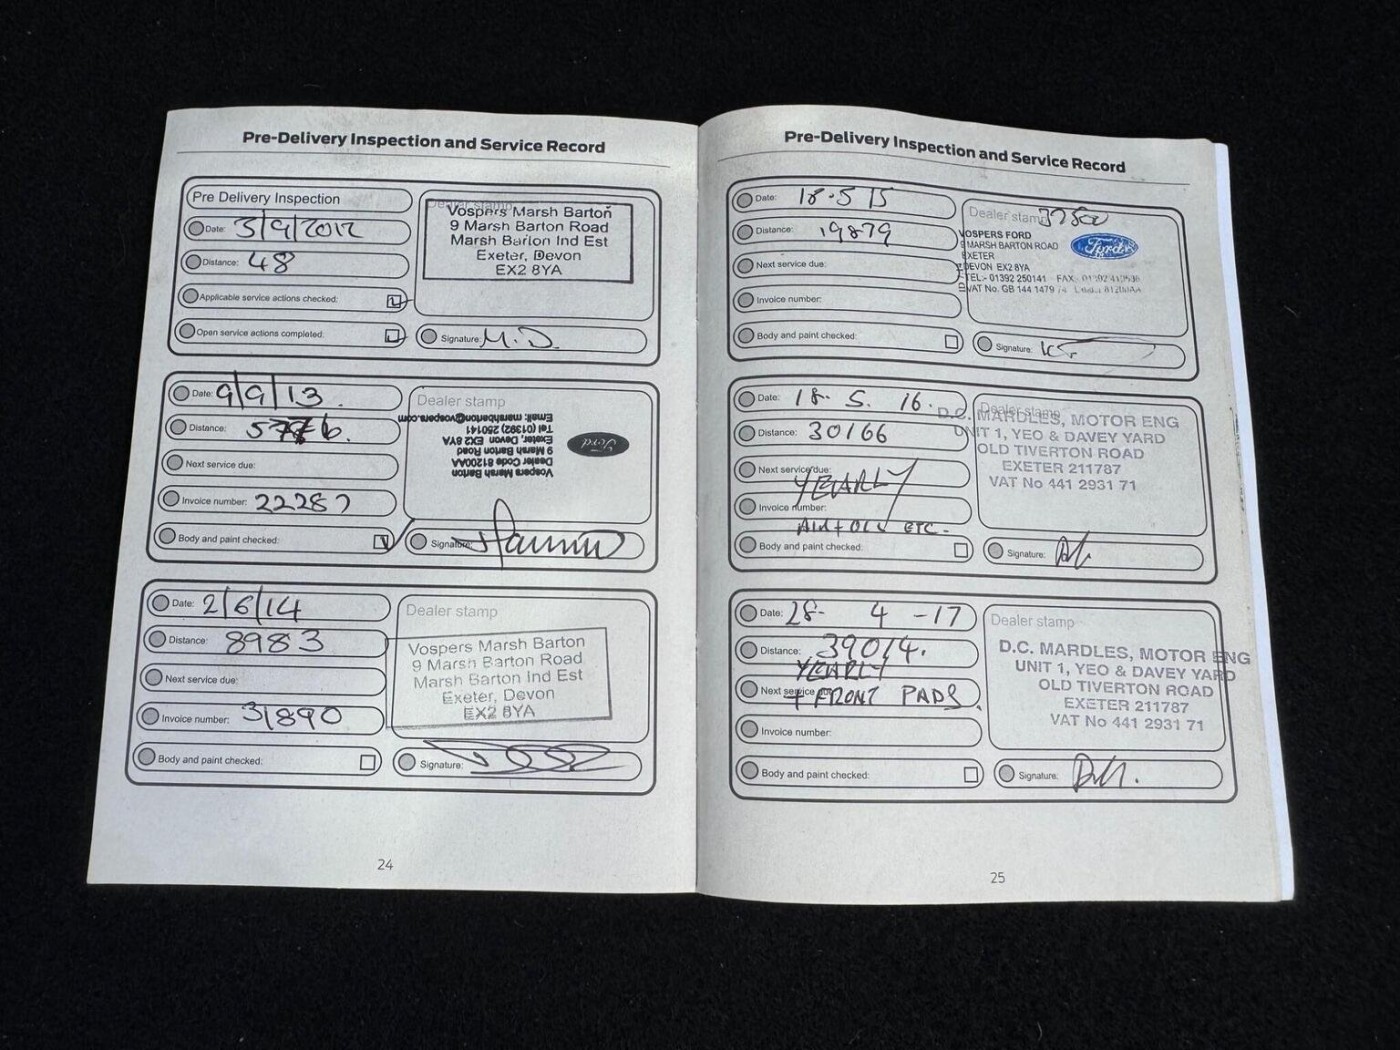 Pre-Delivery Inspection and Service Record
Pre Delivery Inspection
Date: 3/9/2012
Distance: 48
Applicable service actions checked:
Open service actions completed:
Dealer stamp
Vospers Marsh Barton
9 Marsh Barton Road
Marsh Barton Ind Est
Exeter, Devon
EX2 8YA
Signature: M.D.
Date: 9/9/13.
Distance:
Next service due:
Invoice number: 22287
Body and paint checked:
Dealer stamp
Vospers Marsh Barton
Dealer Code 81200AA
9 Marsh Barton Road
Exeter, Devon EX2 8YA
Tel (01392) 250141
Email: marshbarton@vospers.com
Ford
Signature:
Date: 2/6/14
Distance: 8983
Next service due:
Invoice number: 31890
Body and paint checked:
Dealer stamp
Vospers Marsh Barton
9 Marsh Barton Road
Marsh Barton Ind Est
Exeter, Devon
EX2 8YA
Signature:
24
Pre-Delivery Inspection and Service Record
Date: 18.5 15
Distance: 19879
Next service due:
Invoice number:
Body and paint checked:
Dealer stamp
VOSPERS FORD
9 MARSH BARTON ROAD
EXETER
DEVON EX2 8YA
TEL:- 01392 250141 FAX:
VAT No. GB 144 1479
Ford
Signature:
Date: 18. 5. 16.
Distance: 30166
Next service due:
YEARLY
Invoice number:
AIR + OIL ETC.
Body and paint checked:
Dealer stamp
D.C. MARDLES, MOTOR ENG
UNIT 1, YEO & DAVEY YARD
OLD TIVERTON ROAD
EXETER 211787
VAT No 441 2931 71
Signature:
Date: 28- 4 -17
Distance: 39014.
YEARLY
Next service due:
+ FRONT PADS.
Invoice number:
Body and paint checked:
Dealer stamp
D.C. MARDLES, MOTOR ENG
UNIT 1, YEO & DAVEY YARD
OLD TIVERTON ROAD
EXETER 211787
VAT No 441 2931 71
Signature:
25